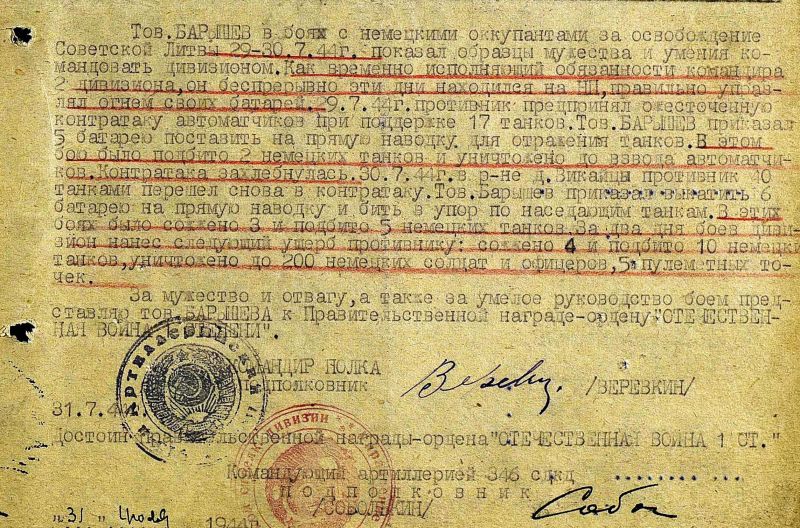 Тов.БАРЫШЕВ в боях с немецкими оккупантами за освобождение
Советской Литвы 29-30.7.44г. показал образцы мужества и умения ко-
мандовать дивизионом.Как временно исполняющий обязанности командира
2 дивизиона,он беспрерывно эти дни находился на НП,правильно управ-
лял огнем своих батарей. 9.7.44г.противник предпринял ожесточенную
контратаку автоматчиков при поддержке 17 танков.Тов.БАРЫШЕВ приказал
5 батарею поставить на прямую наводку для отражения танков.В этом
бою было подбито 2 немецких танков и уничтожено до взвода автоматчи-
ков.Контратака захлебнулась.30.7.44г.в р-не д.Викайцы противник 40
танками перешел снова в контратаку.Тов.Барышев приказал выкатить 6
батарею на прямую наводку и бить в упор по наседающим танкам.В этих
боях было сожжено 3 и подбито 5 немецких танков.За два дня боев диви-
зион нанес следующий ущерб противнику: сожжено 4 и подбито 10 немецки
танков,уничтожено до 200 немецких солдат и офицеров,5 пулеметных то-
чек.
За мужество и отвагу,а также за умелое руководство боем пред-
ставляю тов.БАРЫШЕВА к Правительственной награде-ордену"ОТЕЧЕСТВЕН-
НАЯ ВОЙНА
МАНДИР ПОЛКА
ПОДПОЛКОВНИК /ВЕРЕВКИН/
31.7.44г.
Достоин правительственной награды-ордена"ОТЕЧЕСТВЕННАЯ ВОЙНА 1 СТ."
Командующий артиллерией 346 сдкд ..........
ПОДПОЛКОВНИК
/СОБОЛЬКИН/
"31" июля 1944г.